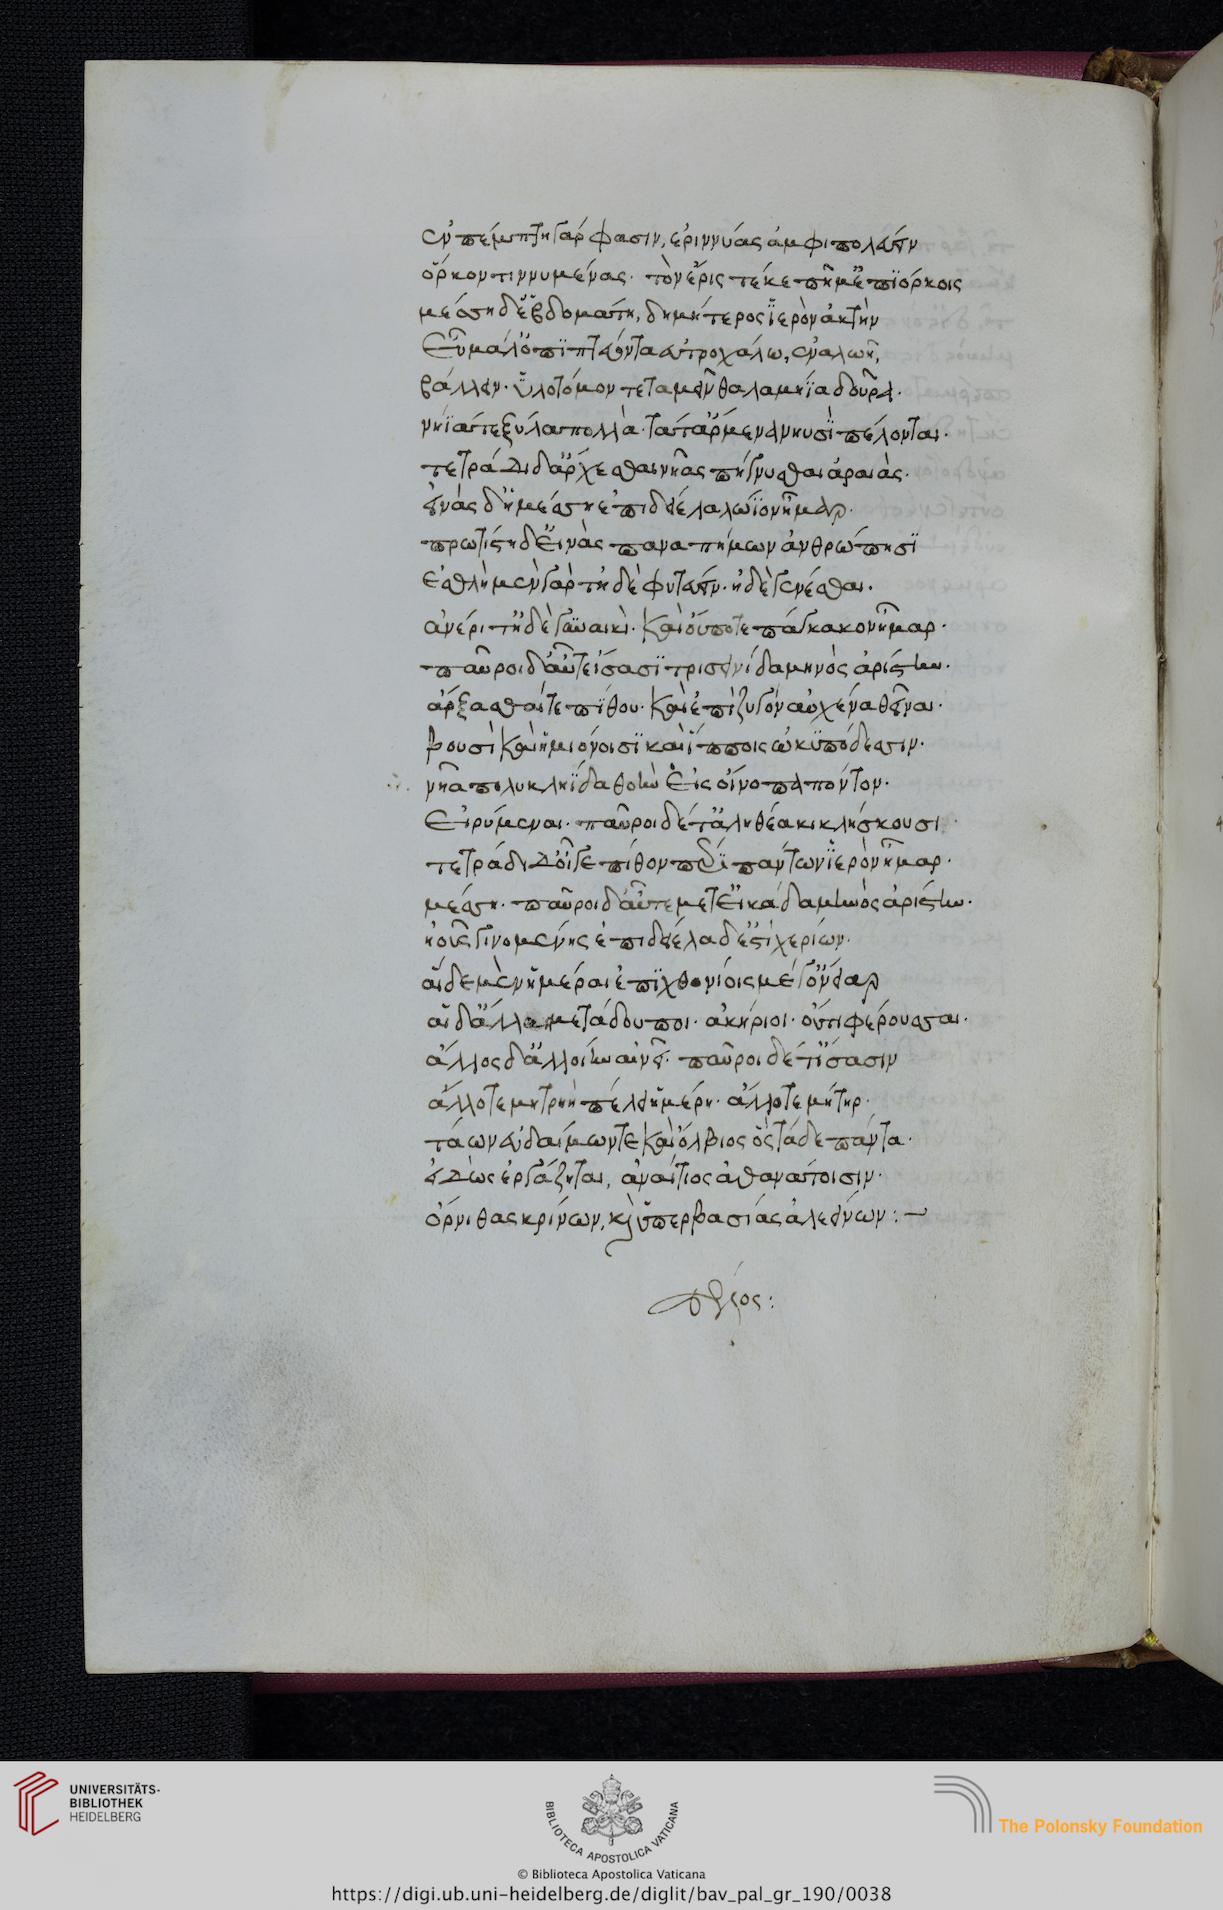 ἐν πέμπτη γάρ φασιν, ἐριννύας ἀμφιπολεύειν
ὅρκον τιννυμένας. τὸν ἔρις τέκε πῆμ' ἐπϊόρκοις
μέσση δ' ἑβδομάτη, δημήτερος ϊερὸν ἀκτὴν
εὖ μάλ' ὀπϊπτεύοντα ἐϋτροχάλω, ἐν ἀλωῆ,
βάλλειν. ὑλοτόμον τε ταμεῖν θαλαμήϊα δοῦρα.
νήϊά τε ξύλα πολλὰ. τά τ' ἄρμενα νηυσὶ πέλονται.
τετράδι δ' ἄρχεσθαι νῆας πήγνυσθαι ἀραιάς.
εἰνὰς δ' ἡ μέσση ἐπὶ δείελα λώϊον ἦμαρ.
πρωτίστη δ' εἰνὰς παναπήμων ἀνθρώπησϊ
ἐσθλὴ μὲν γὰρ τῆ δὲ φυτεύειν. ἠδὲ γενέσθαι.
ἀνέρι τ' ἠδὲ γυναικὶ. καὶ οὔποτε πάγκακον ἦμαρ.
παῦροι δ' αὖτε ἴσασϊ τρισεινάδα μηνὸς ἀρίστην.
ἄρξασθαί τε πίθου. καὶ ἐπὶ ζυγὸν αὐχένα θεῖναι.
βουσὶ καὶ ἡμιόνοισϊ καὶ ἵπποις ὠκϋπόδεσσιν.
νῆα πολυκλήϊδα θοὴν εἰς οἴνοπα πόντον.
εἰρύμεναι. παῦροι δέ τ' ἀληθέα κικλήσκουσι.
τετράδι δ' οἶγε πίθον περὶ πάντων ϊερὸν ἦμαρ.
μέσση. παῦροι δ' αὖτε μετ' εἰκάδα μηνὸς ἀρίστην.
ἠοῦς γινομένης ἐπὶ δείελα δ' ἐστὶ χερίων.
αἵδε μὲν ἡμέραι ἐπϊχθονίοις μέγ' ὄνειαρ
αἱ δ' ἄλλαι μετάδουποι. ἀκήριοι. οὔτι φέρουσαι.
ἄλλος δ' ἀλλοίην αἰνεῖ. παῦροι δέ τ' ἴσασιν
ἄλλοτε μητρηὴ πέλει ἡμέρη. ἄλλοτε μήτηρ.
τάων εὐδαίμων τε καὶ ὄλβιος ὃς τάδε πάντα.
εἰδὼς ἐργάζηται, ἀναίτιος ἀθανάτοισιν.
ὄρνιθας κρίνων, καὶ ὑπερβασίας ἀλεείνων :~
τέλος :
UNIVERSITÄTS-
BIBLIOTHEK
HEIDELBERG
BIBLIOTECA APOSTOLICA VATICANA
The Polonsky Foundation
© Biblioteca Apostolica Vaticana
https://digi.ub.uni-heidelberg.de/diglit/bav_pal_gr_190/0038